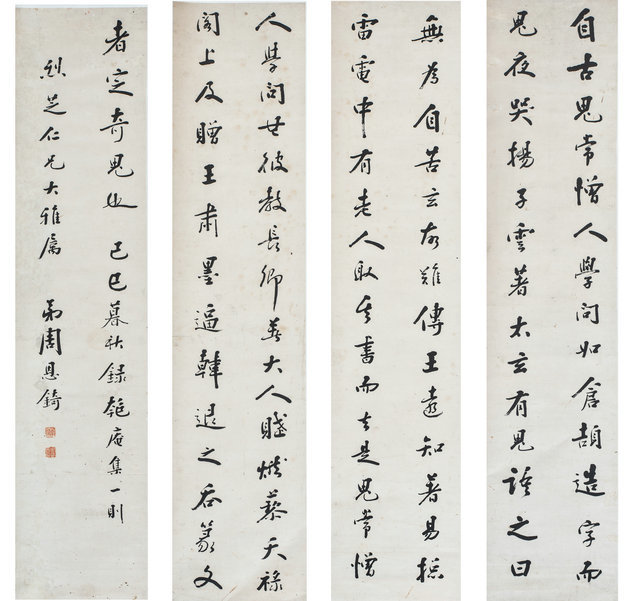 自古鬼常憎人學問如倉頡造字而
鬼夜哭揚子雲著太玄有鬼語之曰
無為自苦玄故難傳王遠知著易總
雷電中有老人取其書而去是鬼常憎
人學問也彼教長卿美大人賦燃藜天祿
閣上及贈王肅墨逼韓退之吞篆文
者定奇鬼也 己巳暮秋錄匏庵集一則
芝仁兄大雅屬 弟周恩錡